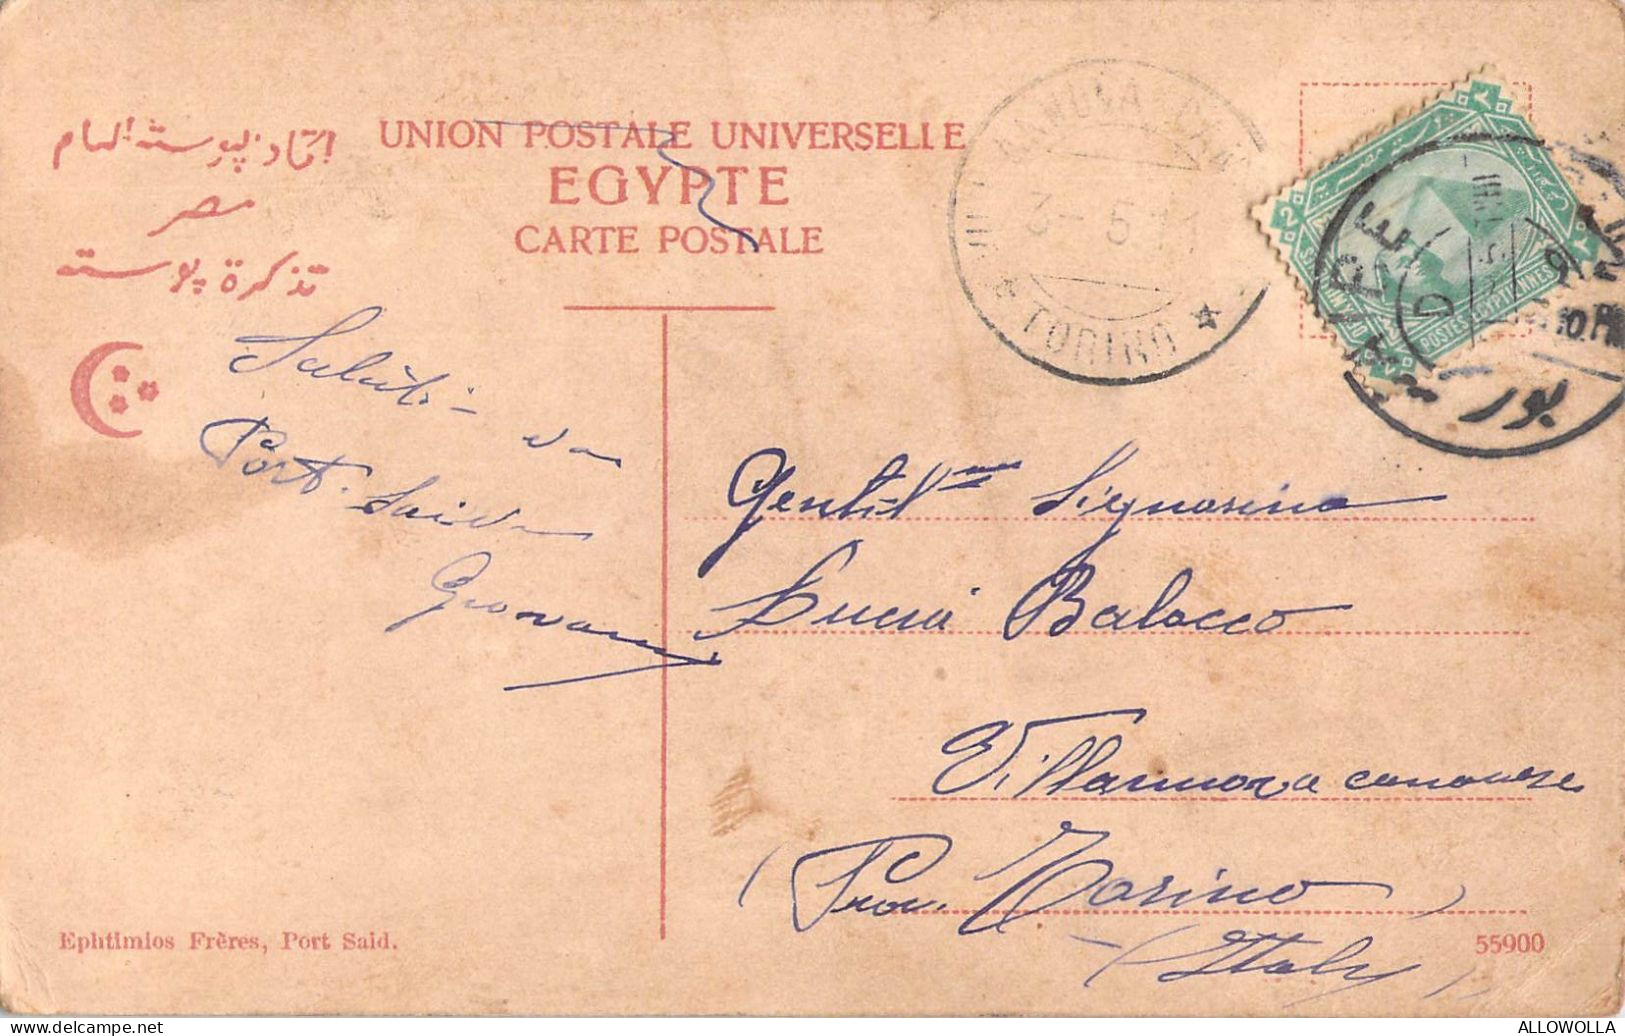 اتحاد پوسته العام
مصر
تذكرة پوسته
UNION POSTALE UNIVERSELLE
EGYPTE
CARTE POSTALE
3-5 11
TORINO
POSTES EGYPTIENNES
2
PORT
D
بور
Saluti da
Port-Said
Giovanni
Gentil.me Signorina
Lucia Balocco
Villanova canavese
(Prov. Torino)
(Italy)
Ephtimios Frères, Port Said.
55900
ALLOWOLLA